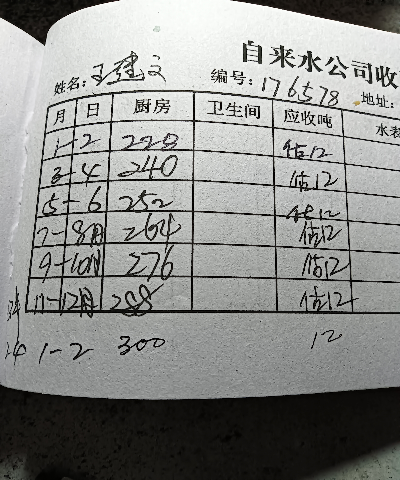 自来水公司收
姓名: 王建文 编号: 176578 地址:
月 日 厨房 卫生间 应收吨 水表
1-2 228 估12
3-4 240 估12
5-6 252 估12
7-8月 264 估12
9-10月 276 估12
11-12月 288 估12
24 1-2 300 12